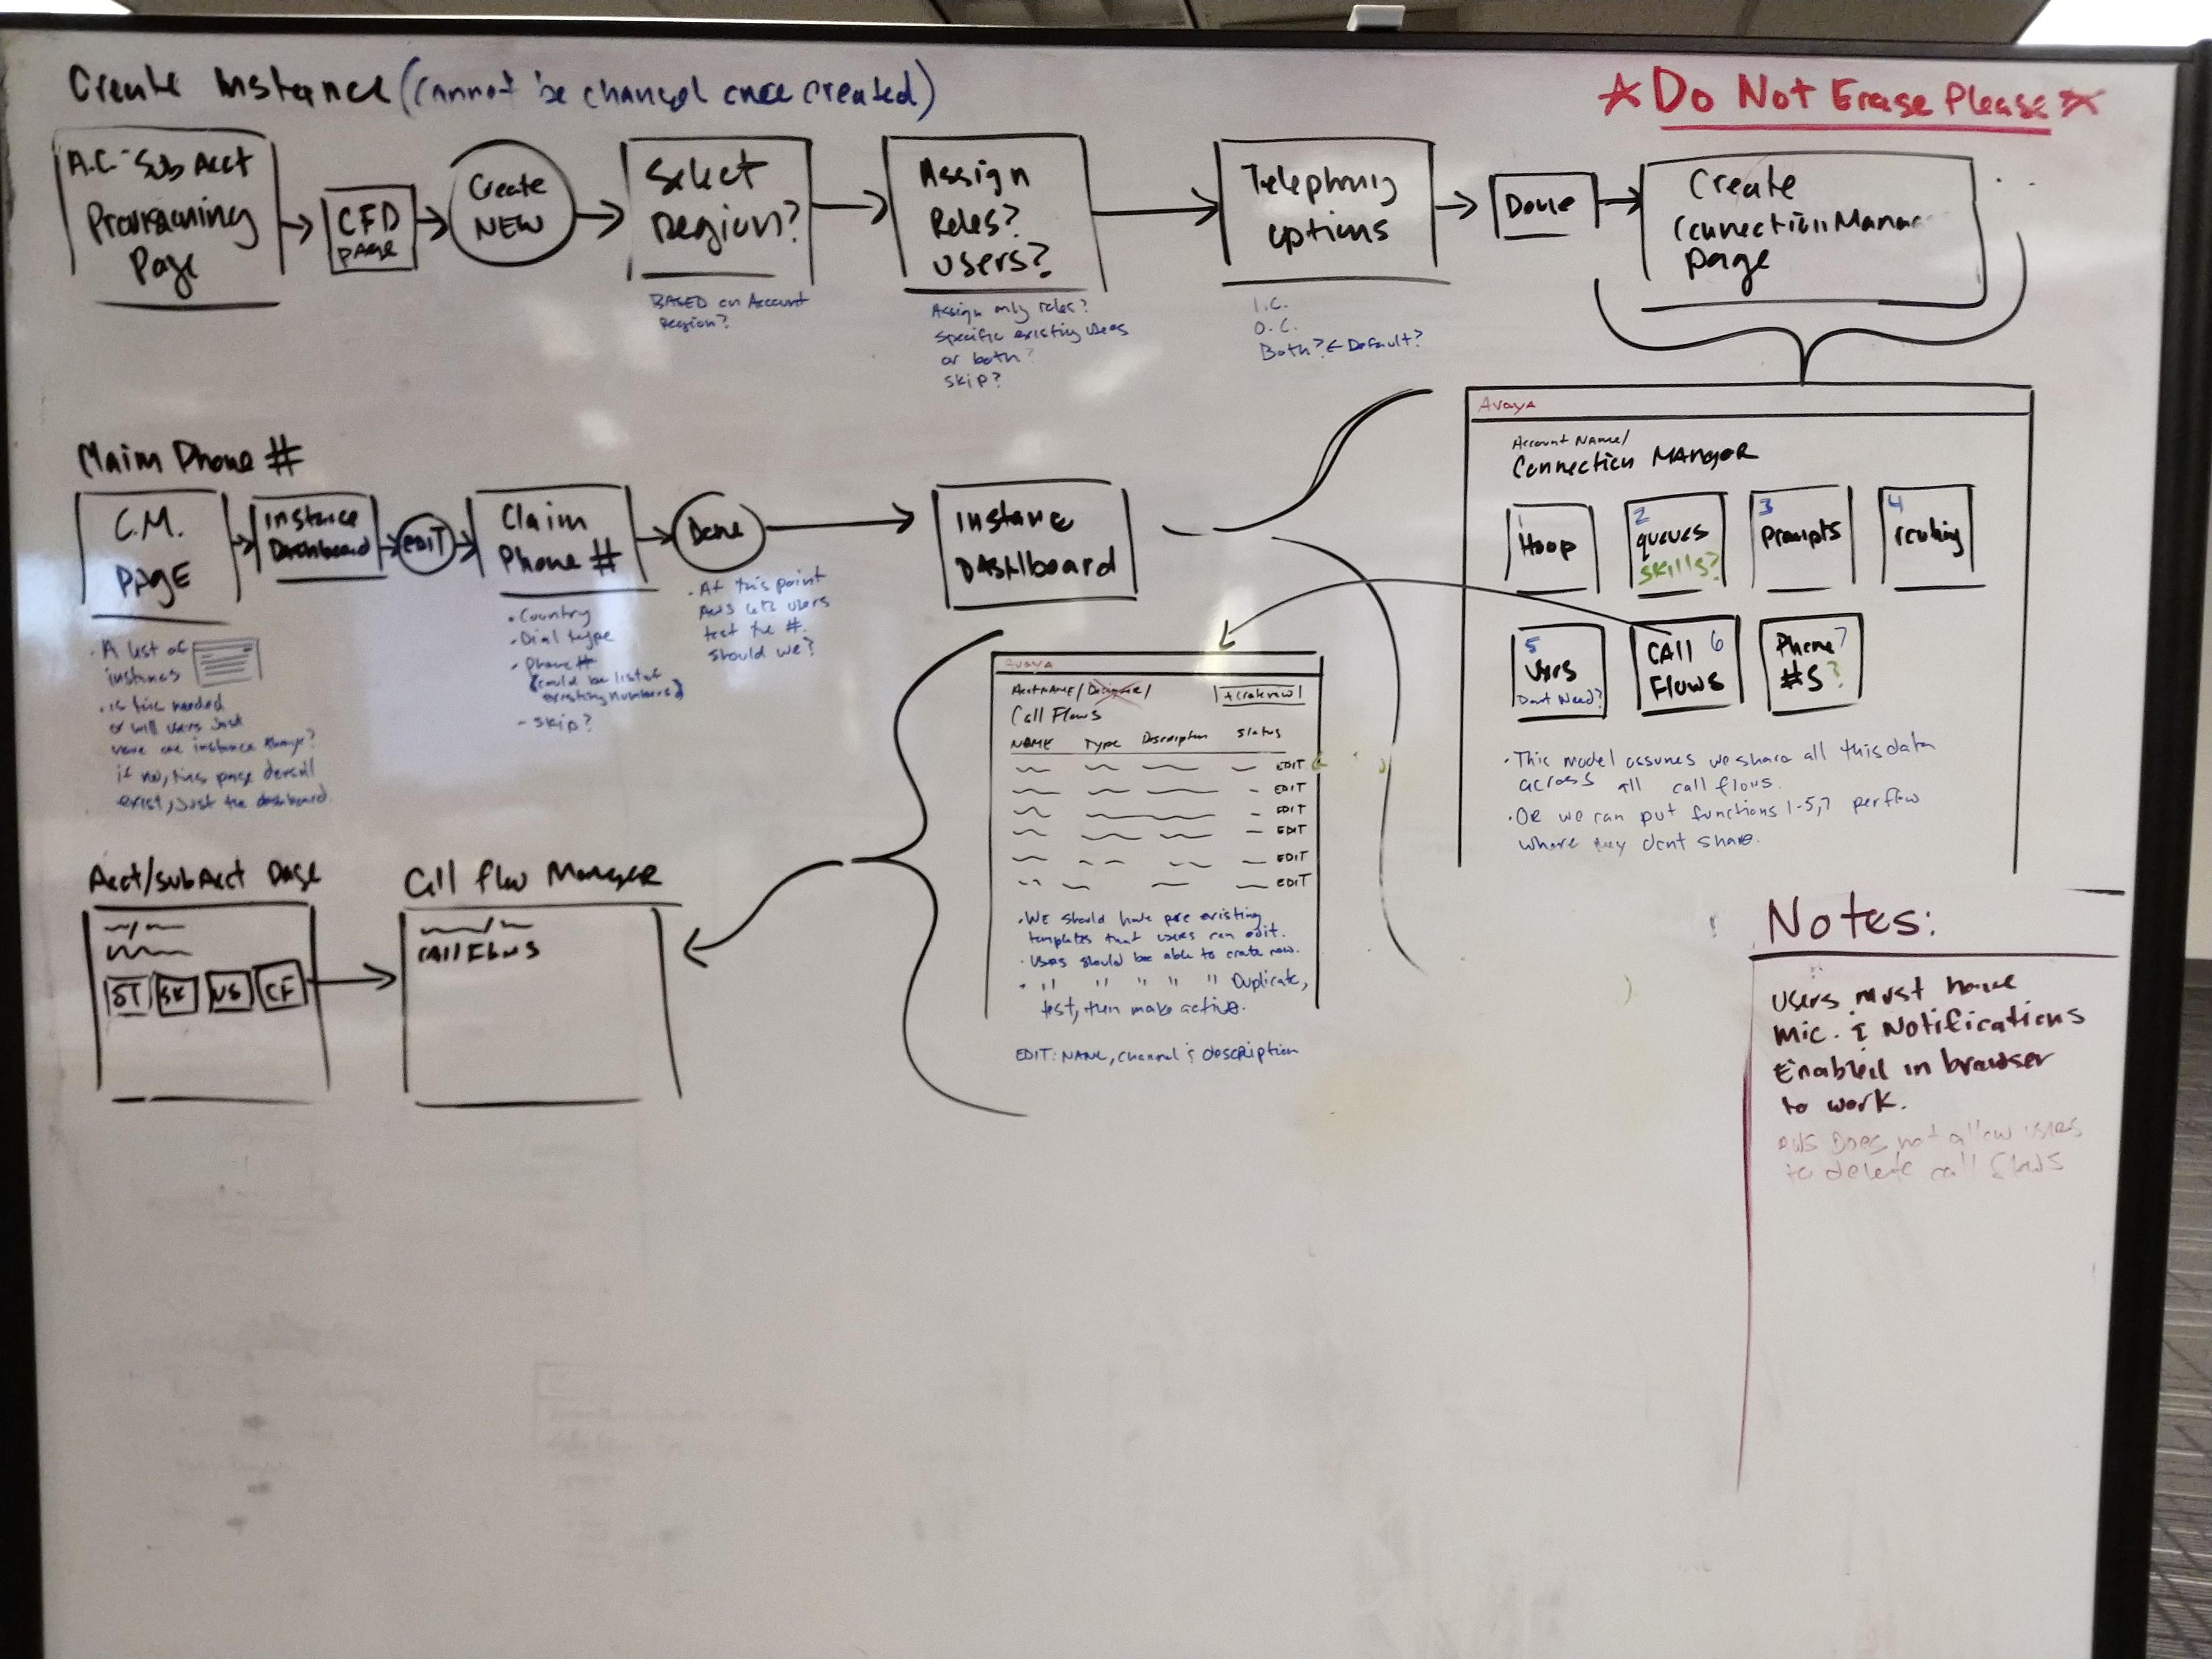 Create Instance (cannot be changed once created)
* Do Not Erase Please *
A.C-Sub Acct
Provisioning
Page
CFD
PAGE
Create
NEW
Select
Region?
BASED on Account
Region?
Assign
Roles?
Users?
Assign only roles?
Specific existing users
or both?
Skip?
Telephony
options
I.C.
O.C.
Both? ← Default?
Done
Create
Connection Manag
page
Claim Phone #
C.M.
PAGE
• A list of
instances
• is this needed
or will users just
have one instance
if no, this page doesn't
exist, just the dashboard.
Instance
Dashboard
EDIT
Claim
Phone #
• Country
• Dial type
• Phone #
(could be list of
existing numbers)
- Skip?
Done
• At this point
AWS lets users
test the #.
Should we?
Instance
DAShboard
Avaya
Account Name/
Connection MAnger
1
Hoop
2
queues
skills?
3
Prompts
4
routing
5
Users
Dont Need?
CAll 6
Flows
Phone 7
#s?
• This model assumes we share all this data
across all call flows.
• OR we can put functions 1-5,7 per flow
where they dont share.
Avaya
AcctNAME/
+ create new
Call Flows
NAME Type Description Status
EDIT
EDIT
EDIT
EDIT
EDIT
EDIT
• WE should have pre existing
templates that users can edit.
• Users should be able to create new.
• " " " " " Duplicate,
test, then make active.
EDIT: NAME, channel & description
Acct/subAcct Page
ST SK US CF
Call flow Manager
CAll Flows
Notes:
Users must have
Mic. & Notifications
Enabled in browser
to work.
AWS Does not allow users
to delete call flows